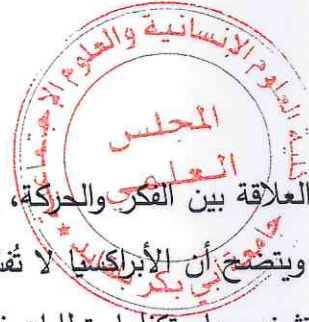 كلية العلوم الإنسانية والعلوم الإجتماعية
المجلس
العلمي
جامعة أبي بكر بلقايد
العلاقة بين الفكر والحركة،
ويتضح أن الأبراكسيا لا تُفس